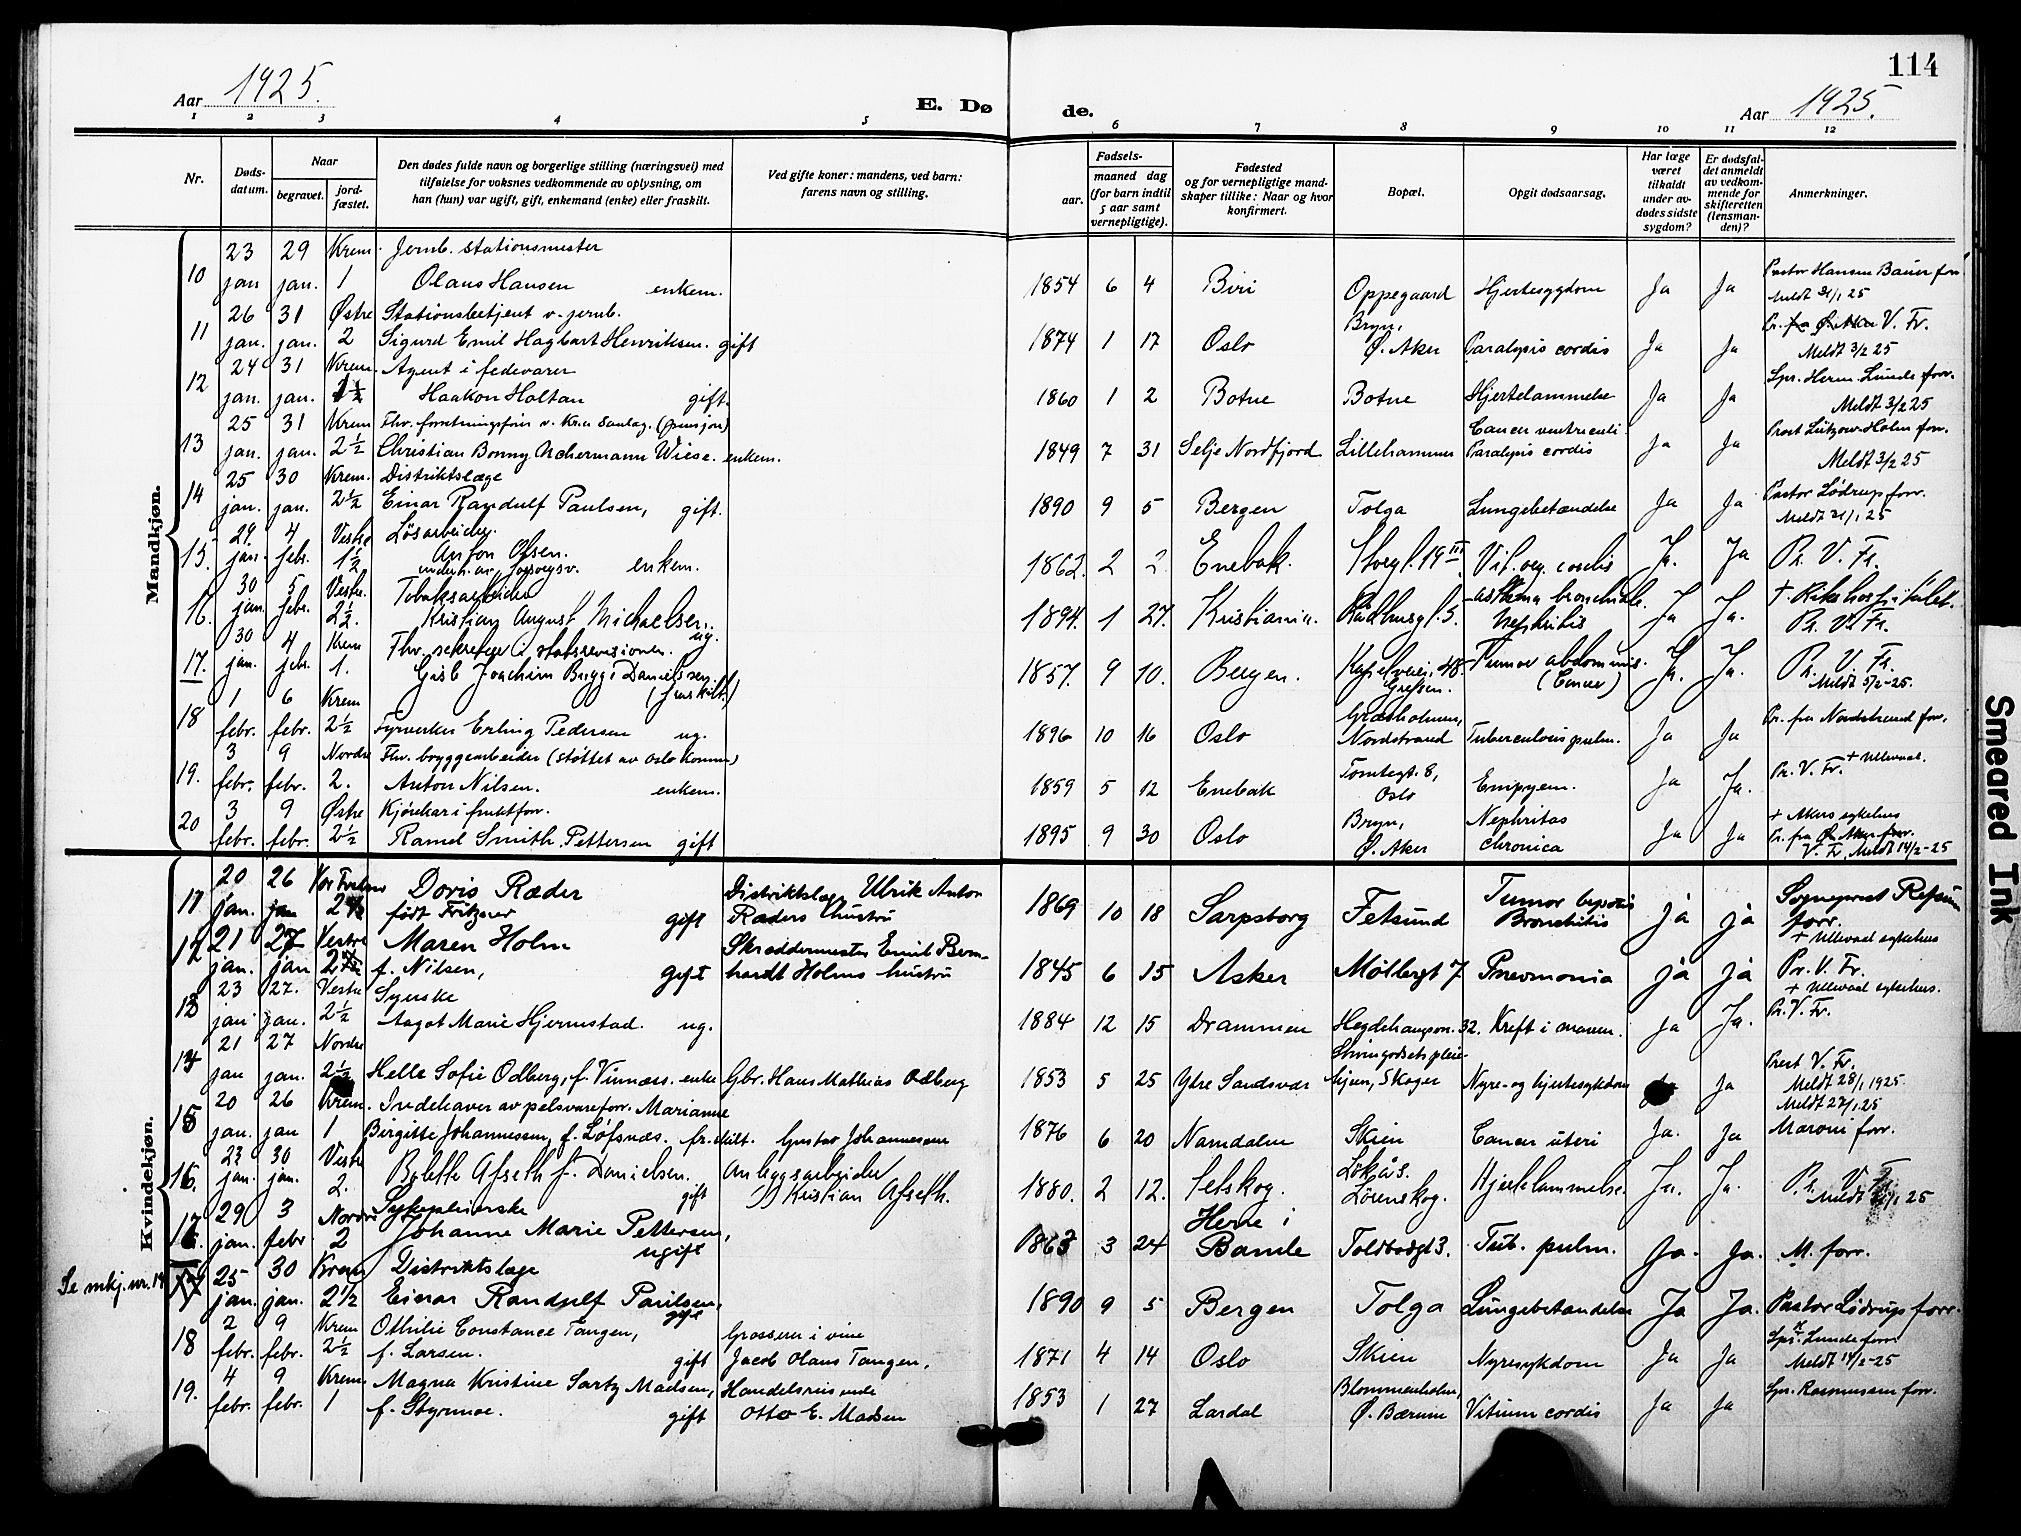 114
Aar 1925.
E. Dø de.
Aar 1925.
1 2 3 4 5 6 7 8 9 10 11 12
Nr.
Døds-datum.
Naar
begravet.
jord-fæstet.
Den dødes fulde navn og borgerlige stilling (næringsvei) med
tilføielse for voksnes vedkommende av oplysning, om
han (hun) var ugift, gift, enkemand (enke) eller fraskilt.
Ved gifte koner: mandens, ved barn:
farens navn og stilling.
Fødsels-
aar.
maaned dag
(for barn indtil
5 aar samt
vernepligtige).
Fødested
og for vernepligtige mand-
skaper tillike: Naar og hvor
konfirmert.
Bopæl.
Opgit dødsaarsag.
Har læge
været
tilkaldt
under av-
dødes sidste
sygdom?
Er dødsfal-
det anmeldt
av vedkom-
mende for
skifteretten
(lensman-
den)?
Anmerkninger.
Mandkjøn.
23 29 Krem. Jernb. stationsmester
10 jan jan. 1 Olaus Hansen enkem. 1854 6 4 Biri Oppegaard Hjertesygdom Ja Ja Pastor Hansen Bauer forr.
Meldt 31/1 25
26 31 Østre Stationsbetjent v. jernb. Bryn,
11 jan. jan. 2 Sigurd Emil Hagbart Henriksen. gift 1874 1 17 Oslo Ø. Aker Paralysis cordis Ja Ja Pr. V. Fr.
Meldt 3/2 25
24 31 Krem. Agent i fedevarer
12 jan. jan. 1½ Haakon Holtan gift. 1860 1 2 Botne Botne Hjertelammelse Ja Ja Spr. Herm. Lunde forr.
Meldt 3/2 25
25 31 Krem Fhv. forretningsfører v. Kr.a Sanlag. (pensjon) Cancer ventriculi.
13 jan. jan. 2½ Christian Bonny Achermann Wiese. enkem. 1849 7 31 Selje Nordfjord Lillehammer Paralysis cordis Ja Ja Prost Lützow-Holm forr.
Meldt 3/2 25
25 30 Krem. Distriktslæge
14 jan. jan. 2½ Einar Randulf Paulsen, gift. 1890 9 5 Bergen Tolga Lungebetændelse Ja Ja Pastor Lødrup forr.
Meldt 31/1 25
29. 4 Vestre Løsarbeider.
15. jan. febr. 1½ Anton Olsen. enkem. 1862. 2 2. Enebak. Storgt. 19 III Vit. org. cordis Ja. Ja Pr. V. Fr.
underh. av forsorgsv.
30 5 Vestre. Tobaksarbeider asthma bronchiale.
16. jan. febr. 2½. Kristian August Michaelsen. ug. 1894. 1 27. Kristiania. Raadhusgt. 5. Nephritis Ja Ja. + Rikshospitalet.
Pr. V. Fr.
30 4 Krem Fhv. sekretær i statsrevisionen.
17. jan. febr. 1. Gisb Joachim Brygge Danielssen. (fraskilt) 1857. 9 10. Bergen. Kapelveien 48. Grefsen. Tumor abdominis. (Cancer) Ja. Ja. Pr. V. Fr.
Meldt 5/2-25.
1 6 Krem Græsholmen,
18 febr. febr. 2½ Fyrverker Erling Pedersen ug. 1896 10 16 Oslo Nordstrand Tuberculosis pulm. Ja Ja Pr. fra Nordstrand forr.
3 9 Nordre Fhv. bryggearbeider (støttet av Oslo komm) Tomtegt. 8, + Ullevaal.
19. febr. febr. 2. Anton Nilsen. enkem. 1859 5 12 Enebak Oslo Empyem. Ja Ja. Pr. V. Fr.
3 9 Østre Kjørekar i fruktforr. Bryn, Nephritas + Akers sykehus
20 febr. febr. 2½ Ramel Smith Pettersen gift 1895 9 30 Oslo Ø. Aker chronica Ja Ja Pr. fra Ø. Aker forr.
V. Fr. Meldt 14/2-25
Kvindekjøn.
20 26 Vor Frelser Doris Ræder Distriktslæge Ulrik Anton Tumor
11 jan. jan 2½ født Fritzner gift Ræders hustru 1869 10 18 Sarpsborg Fetsund Bronchitis ja ja Sogneprest Refsum
forr.
21 27 Vestre Maren Holm Skræddermester Emil Bern- + Ullevaal sykehus
12 jan. jan 2½ f. Nilsen, gift hardt Holms hustru 1845 6 15 Asker Møllergt 7 Pnevmonia ja ja Pr. V. Fr.
23 27. Vestre Syerske + Ullevaal sykehus.
13 jan. jan. 2½ Aagot Marie Hjermstad. ug. 1884 12 15 Drammen Hegdehaugsv. 32. Kreft i maven. Ja Ja. Pr. V. Fr.
21 27 Nordre Strømgodsets pleie-
14 jan jan. 2½ Helle Sofie Odberg, f. Vinnæs. enke Gbr. Hans Mathias Odberg 1853 5 25 Ytre Sandsvær hjem, Skoger Nyre- og hjertesykdom Ja Prest V. Fr.
Meldt 28/1 1925
20 26 Krem. Indehaver av pelsvareforr. Marianne Meldt 27/1 25
15 jan. jan 1 Birgitte Johannessen, f. Løfsnæs. fr.skilt. Gustav Johannessen 1876 6 20 Namdalen Skien Cancer uteri Ja. Ja Maroni forr.
23 30 Vestre
16. jan. jan. 2. Bolette Afseth f. Danielsen. gift Anlægsarbeider Kristian Afseth. 1880. 2 12. Setskog. Lokås. Lørenskog. Hjertelammelse. Ja. Ja. Pr. V. Fr.
Meldt 31/1 25
29 3 Nordre Sykepleierske Herre i
17 jan. febr 2 Johanne Marie Pettersen, ugift 1863 3 24 Bamle Toldbodgt 3. Tub. pulm. Ja. Ja. M. forr.
Se mkj. nr. 14
25 30 Krem Distriktslæge
17 jan. jan. 2½ Einar Randulf Paulsen, gift 1890 9 5 Bergen Tolga Lungebetændelse Ja Ja. Pastor Lødrup forr.
2 9 Krem Othilie Constance Tangen, Grosserer i vine Spr. Lunde forr
18 febr. febr. 2½ f. Larsen. gift Jacob Olaus Tangen, 1871 4 14 Oslo Skien Nyresykdom Ja Ja Meldt 14/2-25
4 9 Krem. Magna Kristine Sartz Madsen, Handelsreisende Blommenholm,
19. febr. febr. 1 f. Styrmoe. gift Otto E. Madsen 1853 1 27 Lardal Ø. Bærum Vitium cordis Ja Ja Spr. Rasmussen forr.
Smeared Ink